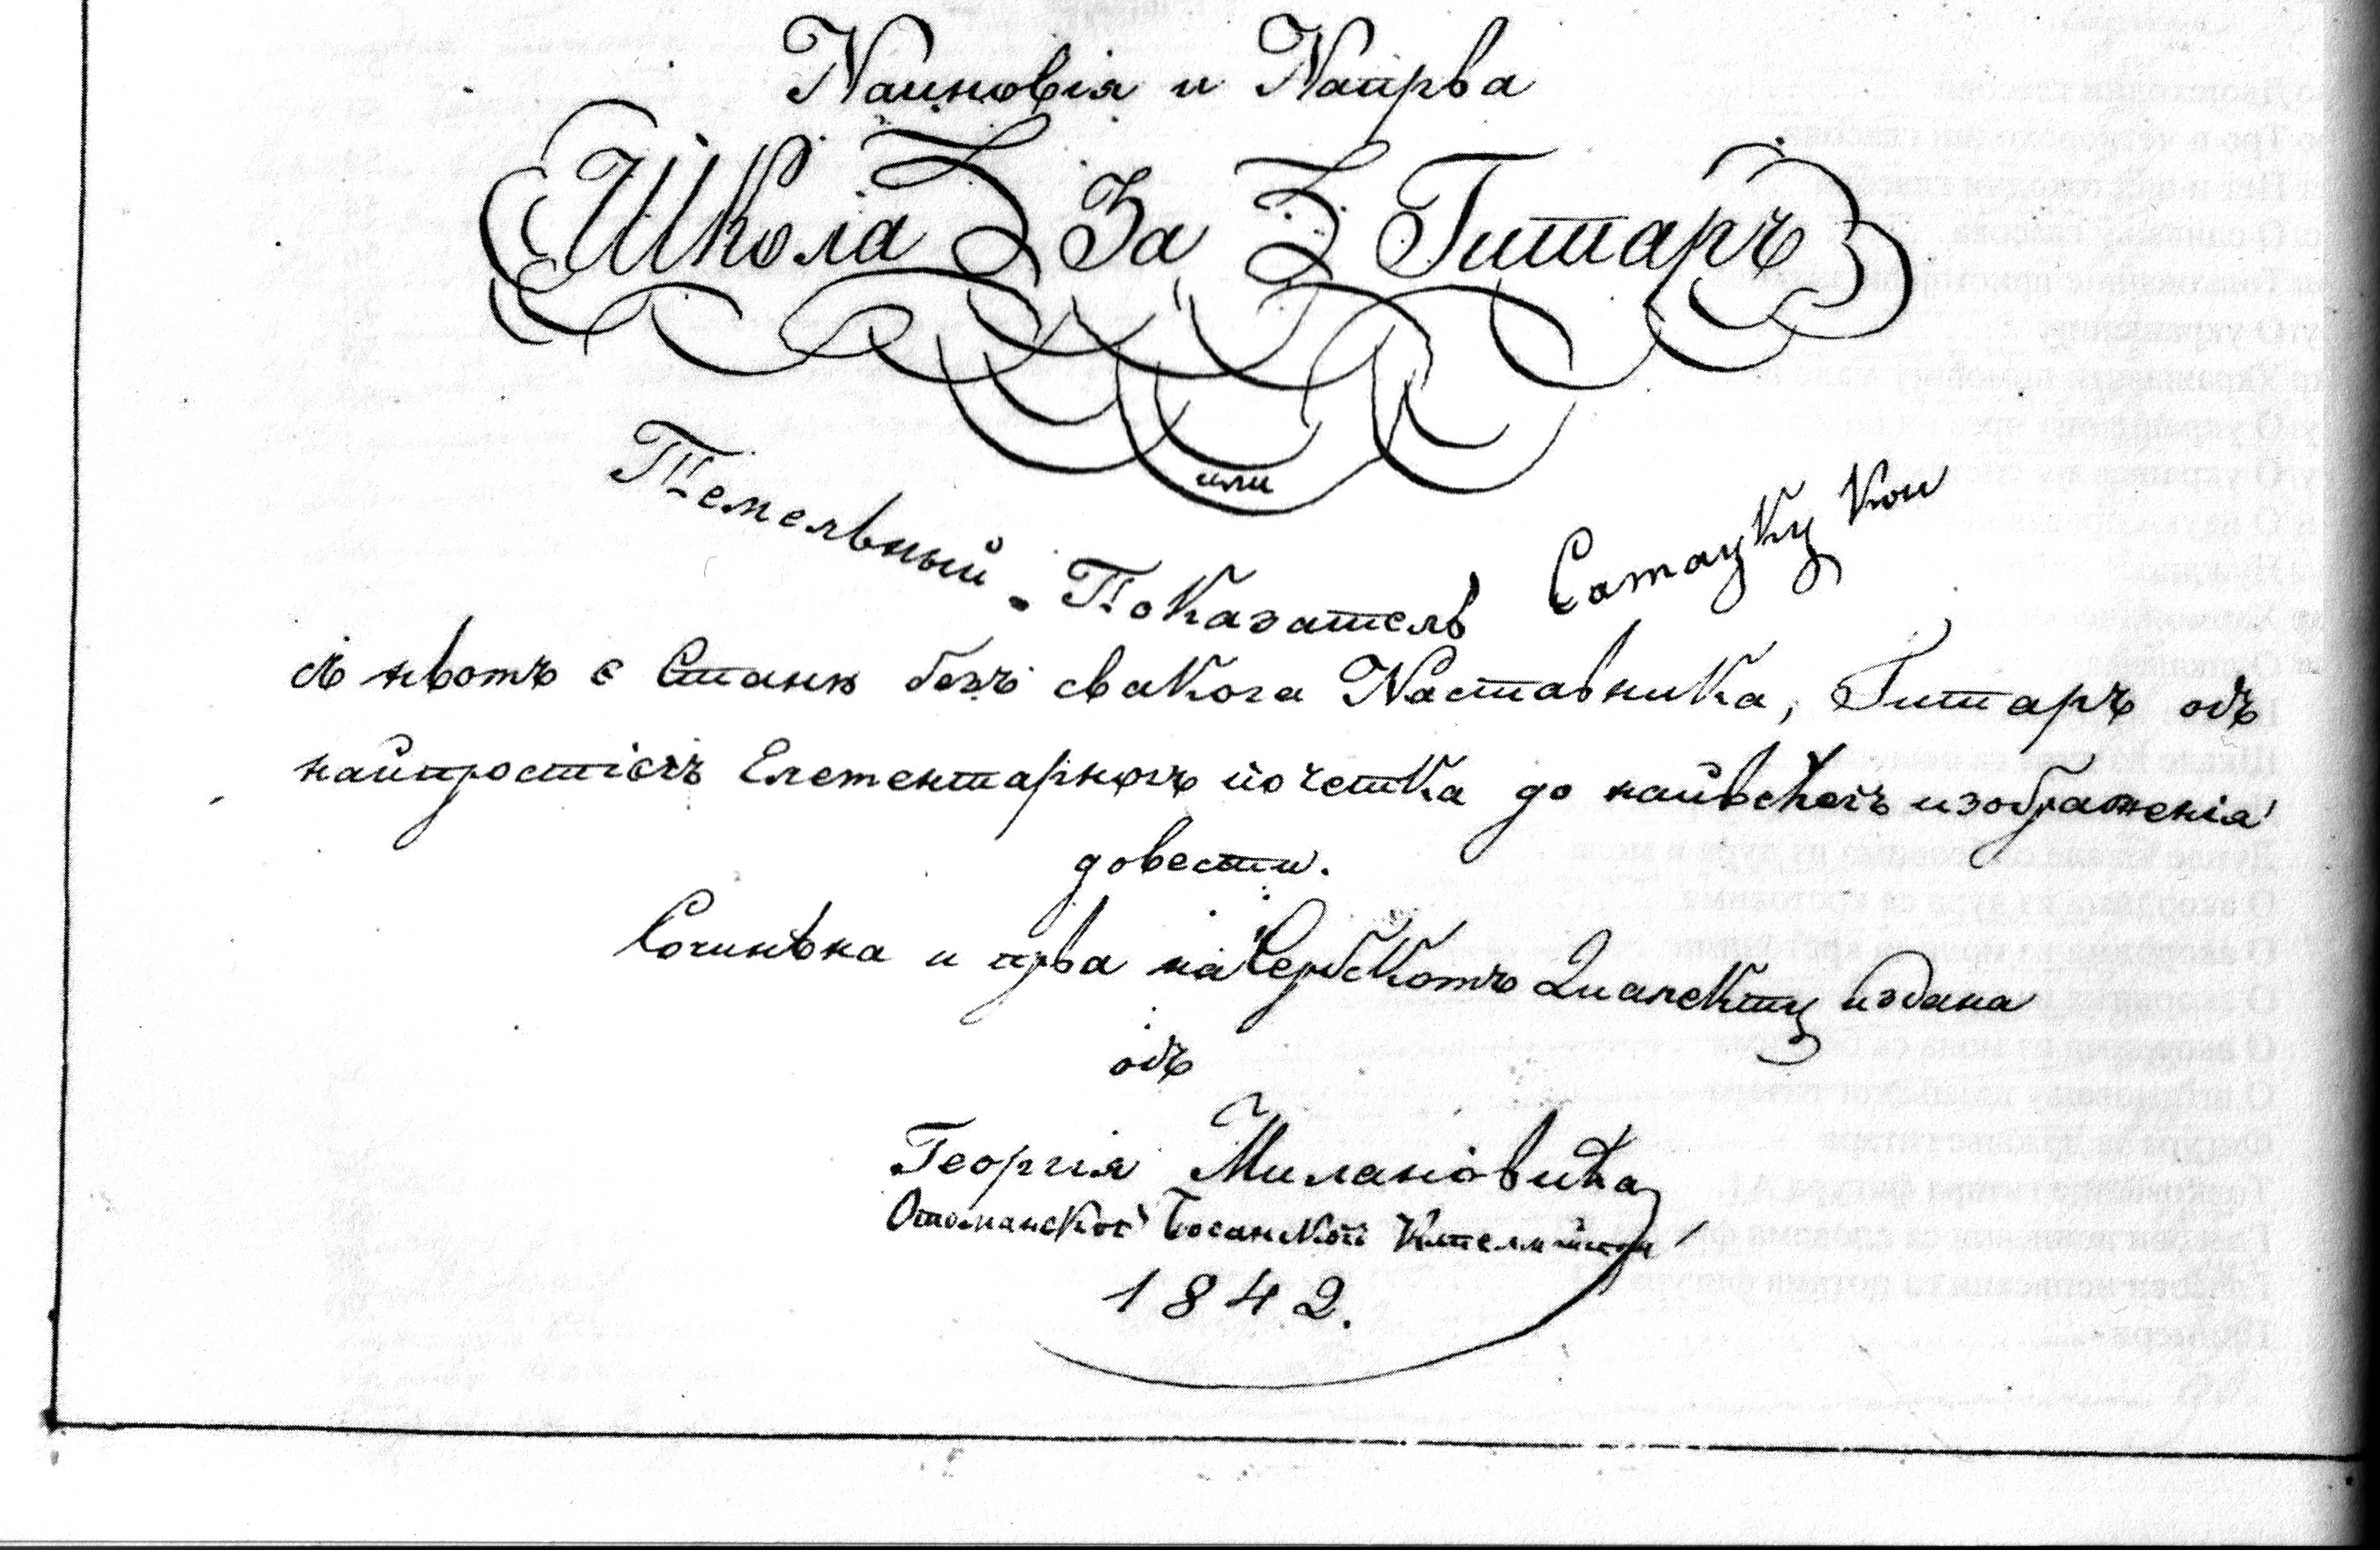 Наиновія и Наирва
Школа За Гитаръ
или
Темельный - Показатель Сатауку кои
є Станѣ безъ свакога Наставника, Гитаръ одъ
найпростіегъ Елементарногъ почетка до найвећегъ изображенія
довести.
Сочинѣна и прва на Сербскомъ Диалекту издана
одъ
Георгія Милановића
Отоманской Босанской
1842.